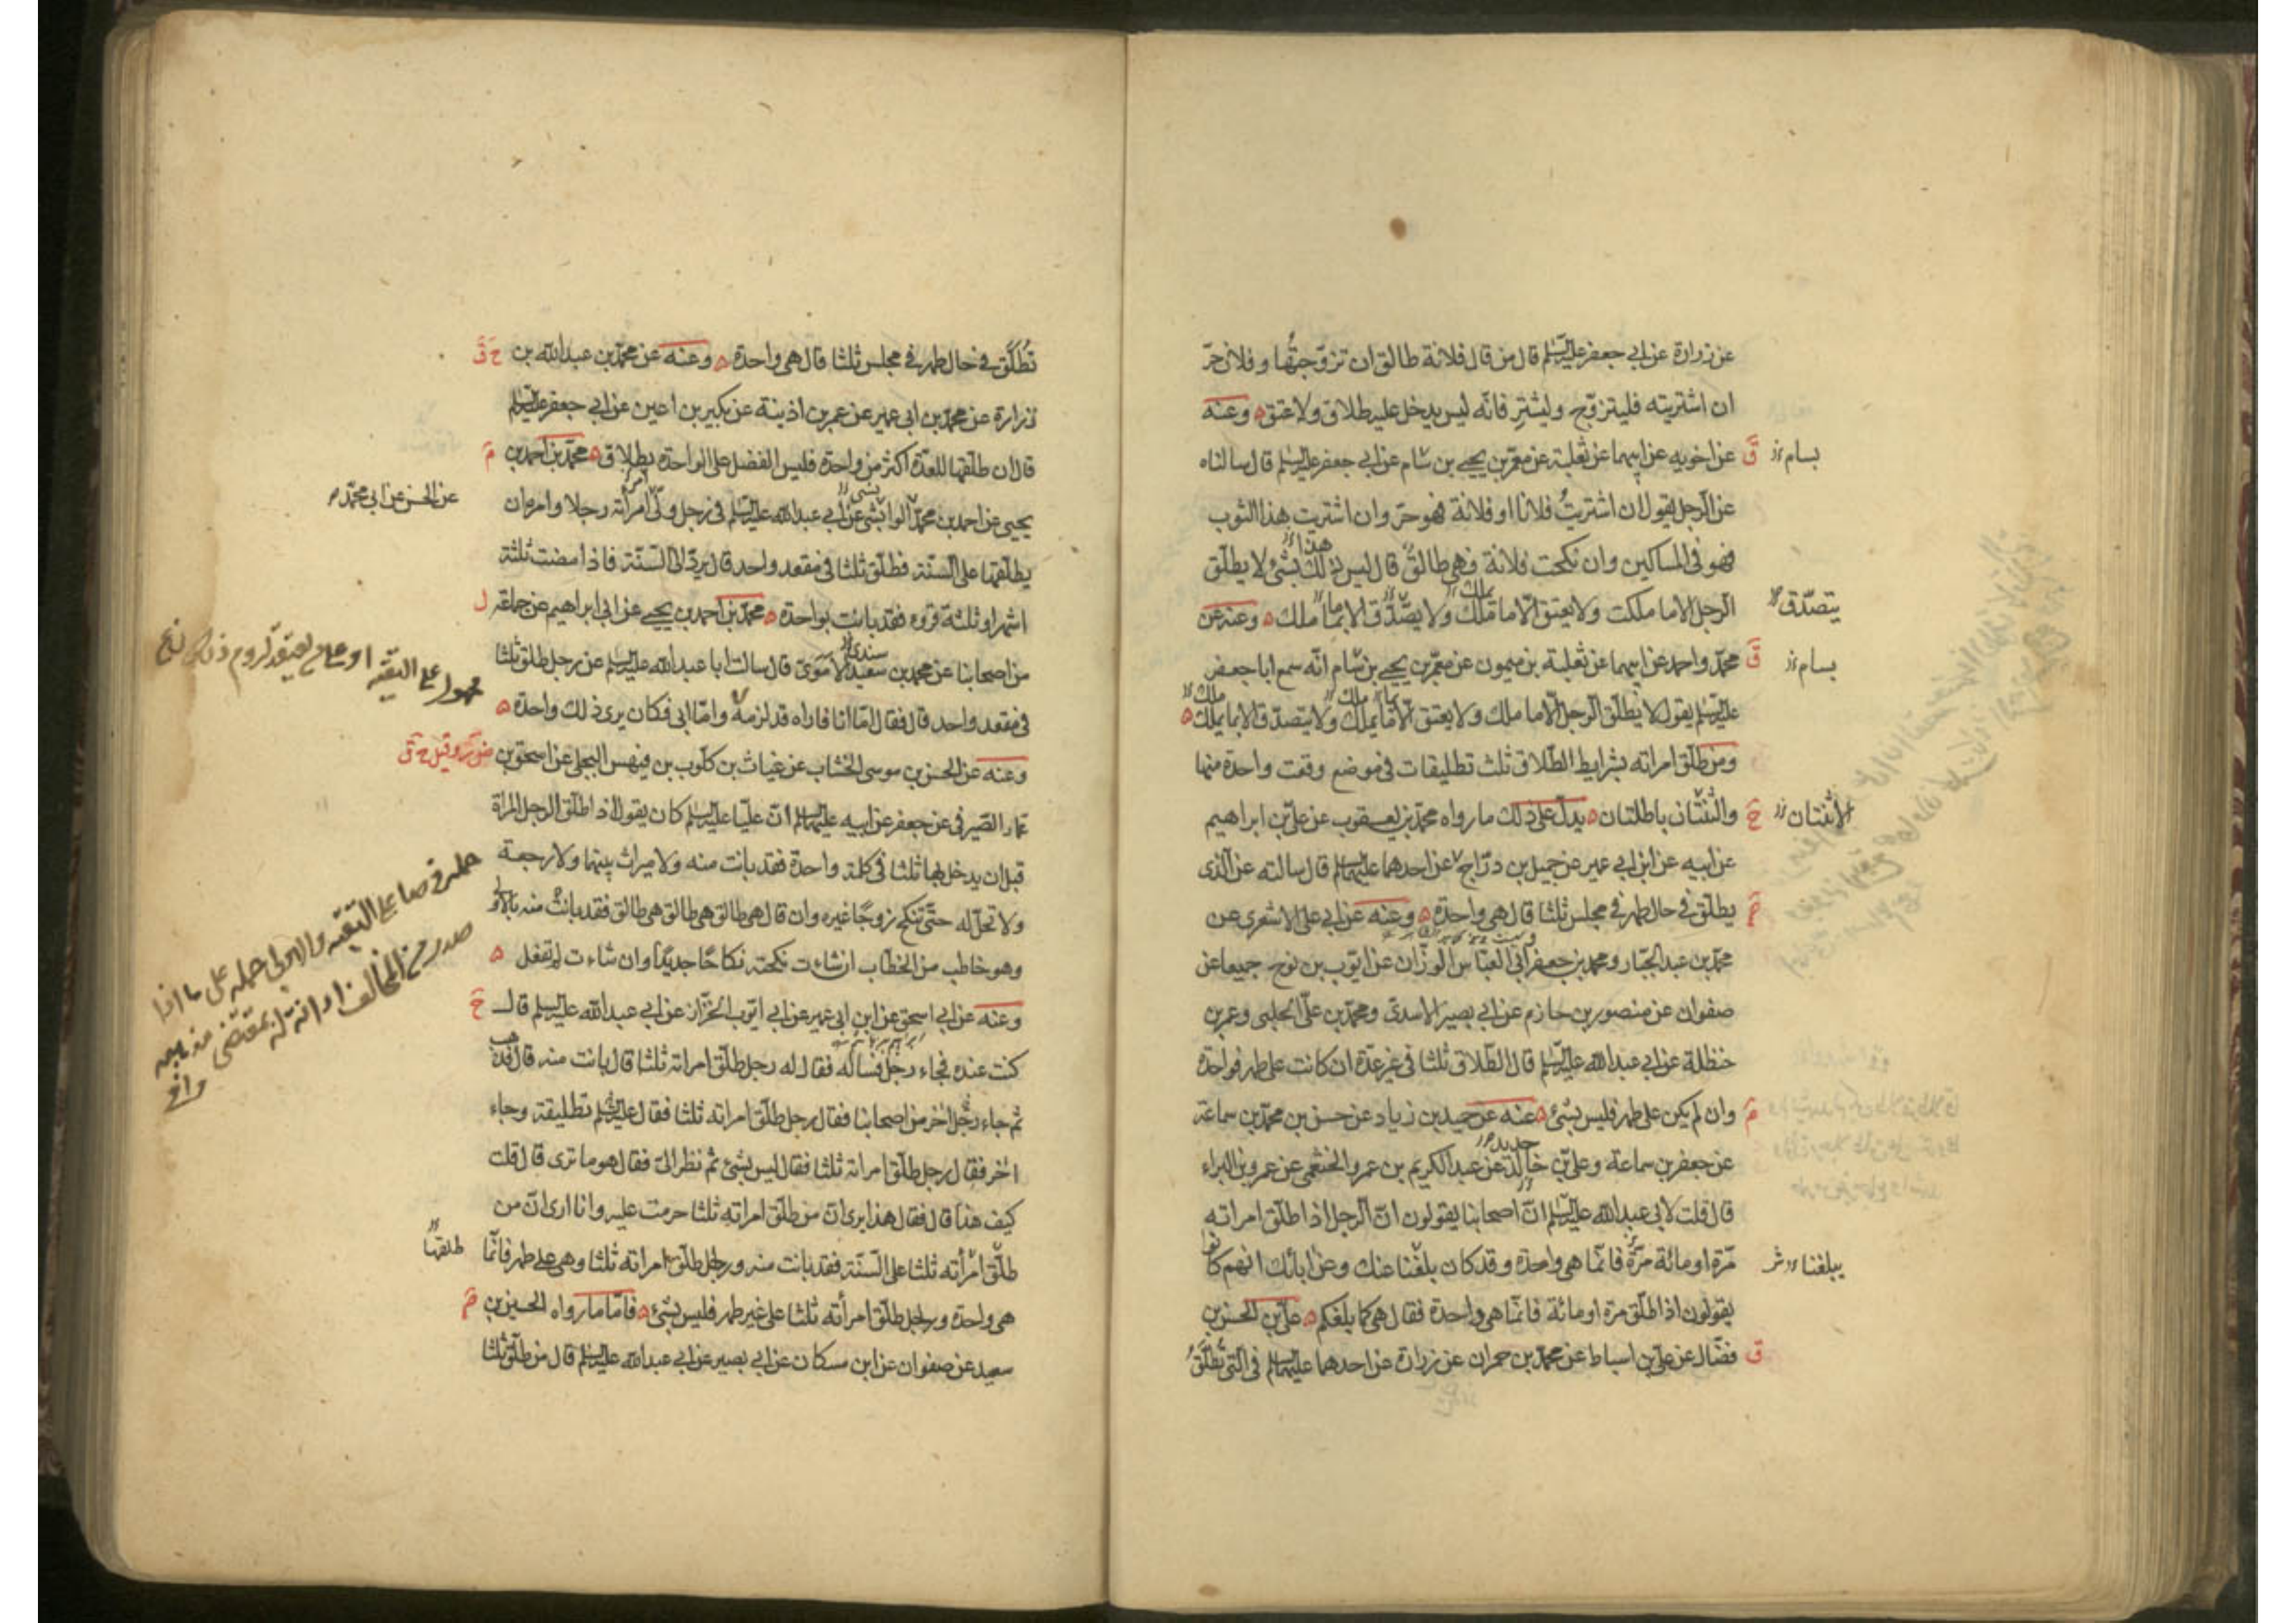 عن زرارة عن ابي جعفر عليه السلم قال من قال فلانة طالق ان تزوجتها وفلان حر
ان اشتريته فليتزوج وليشتر فانه ليس يدخل عليه طلاق ولا عتق ۵ وعنه
عن اخويه عن ابيهما عن ثعلبة عن معمر بن يحيى بن شام عن ابي جعفر عليه السلم قال سالناه
ق
بسام
عن الرجل يقول ان اشتريت فلانا او فلانة فهو حر وان اشتريت هذا الثوب
فهو في المساكين وان نكحت فلانة فهي طالق قال ليس ذلك بشئ لا يطلق
هذا
الرجل الا ما ملكت ولا يعتق الا ما تملك ولا يصدق الا بما ملك ۵ وعنه عن
يملك
ما
يتصدق
محمد واحمد عن ابيهما عن ثعلبة بن ميمون عن معمر بن يحيى بن شام انه سمع ابا جعفر
ق
بسام
عليه السلم يقول لا يطلق الرجل الا ما ملك ولا يعتق الا ما يملك ولا يتصدق الا بما يملك ۵
ملك
ملك
ومن طلق امراته بشرايط الطلاق ثلث تطليقات في موضع وقعت واحدة منها
والثنتان باطلتان ۵ يدل على ذلك ما رواه محمد بن يعقوب عن علي بن ابراهيم
ح
الاثنتان
عن ابيه عن ابن ابي عمير عن جميل بن دراج عن احدهما عليهما السلم قال سالته عن الذي
يطلق في حال طهر في مجلس ثلثا قال هي واحدة ۵ وعنه عن ابي علي الاشعري عن
محمد بن عبد الجبار ومحمد بن جعفر ابي العباس الوزان عن ايوب بن نوح جميعا عن
صفوان عن منصور بن حازم عن ابي بصير الاسدي ومحمد بن علي الحلبي وعمر بن
حنظلة عن ابي عبد الله عليه السلم قال الطلاق ثلثا في غير عدة ان كانت على طهر فواحدة
وان لم يكن على طهر فليس بشئ ۵ عنه عن حميد بن زياد عن حسن بن محمد بن سماعة
عن جعفر بن سماعة وعلي بن خالد عن عبد الكريم بن عمرو الخثعمي عن عمرو بن البراء
قال قلت لابي عبد الله عليه السلم ان اصحابنا يقولون ان الرجل اذا طلق امراته
مرة او مائة مرة فانما هي واحدة وقد كان بلغنا عنك وعن ابائك انهم كانوا
يبلغنا
يقولون اذا طلق مرة او مائة فانما هي واحدة فقال هي كما بلغكم ۵ علي بن الحسن بن
فضال عن علي بن اسباط عن محمد بن حمران عن زرارة عن احدهما عليهما السلم في التي تطلق
ق
تطلق في حال طهر في مجلس ثلثا قال هي واحدة ۵ وعنه عن محمد بن عبد الله بن
ح ق
زرارة عن محمد بن ابي عمير عن عمر بن اذينة عن بكير بن اعين عن ابي جعفر عليه السلم
قال ان طلقها للعدة اكثر من واحدة فليس الفضل على الواحدة بطلاق ۵ محمد بن احمد بن
يحيى عن احمد بن محمد الوابشي عن ابي عبد الله عليه السلم في رجل ولى امراته رجلا وامره ان
عن الحسن عن ابي محمد
يطلقها على السنة فطلق ثلثا في مقعد واحد قال يرد الى السنة فاذا مضت ثلثة
اشهر او ثلثة قروء فقد بانت بواحدة ۵ محمد بن احمد بن يحيى عن ابي ابراهيم عن جماعة
ل
من اصحابنا عن محمد بن سعيد الاموي قال سالت ابا عبد الله عليه السلم عن رجل طلق ثلثا
سندي
في مقعد واحد قال فقال اما انا فاراه قد لزمه واما ابي فكان يرى ذلك واحدة ۵
محمول على التقيه او على من يعتقد لزوم ذلك
وعنه عن الحسن بن موسى الخشاب عن غياث بن كلوب بن فيهس البجلي عن اسحق بن
عمار الصيرفي عن جعفر عن ابيه عليهما السلم ان عليا عليه السلم كان يقول اذا طلق الرجل المراة
قبل ان يدخل بها ثلثا في كلمة واحدة فقد بانت منه ولا ميراث بينهما ولا رجعة
ولا تحل له حتى تنكح زوجا غيره وان قال هي طالق هي طالق هي طالق فقد بانت منه بالاولى
وهو خاطب من الخطاب ان شاءت نكحته نكاحا جديدا وان شاءت لم تفعل ۵
على التقيه والاولى حمله على ما اذا
صدر من المخالف
وعنه عن ابي اسحق عن ابن ابي عمير عن ابي ايوب الخزاز عن ابي عبد الله عليه السلم قال
ح
كنت عنده فجاء رجل فساله فقال له رجل طلق امراته ثلثا قال بانت منه قال فذهب
ثم جاء رجل اخر من اصحابنا فقال رجل طلق امراته ثلثا فقال عليه السلم تطليقة وجاء
اخر فقال رجل طلق امراته ثلثا فقال ليس بشئ ثم نظر الي فقال هو ما ترى قال قلت
كيف هذا قال فقال هذا يرى ان من طلق امراته ثلثا حرمت عليه وانا ارى ان من
طلق امرأته ثلثا على السنة فقد بانت منه ورجل طلق امراته ثلثا وهي على طهر فانما
طلقها
هي واحدة ورجل طلق امرأته ثلثا على غير طهر فليس بشئ ۵ فاما ما رواه الحسين بن
سعيد عن صفوان عن ابن مسكان عن ابي بصير عن ابي عبد الله عليه السلم قال من طلق ثلثا